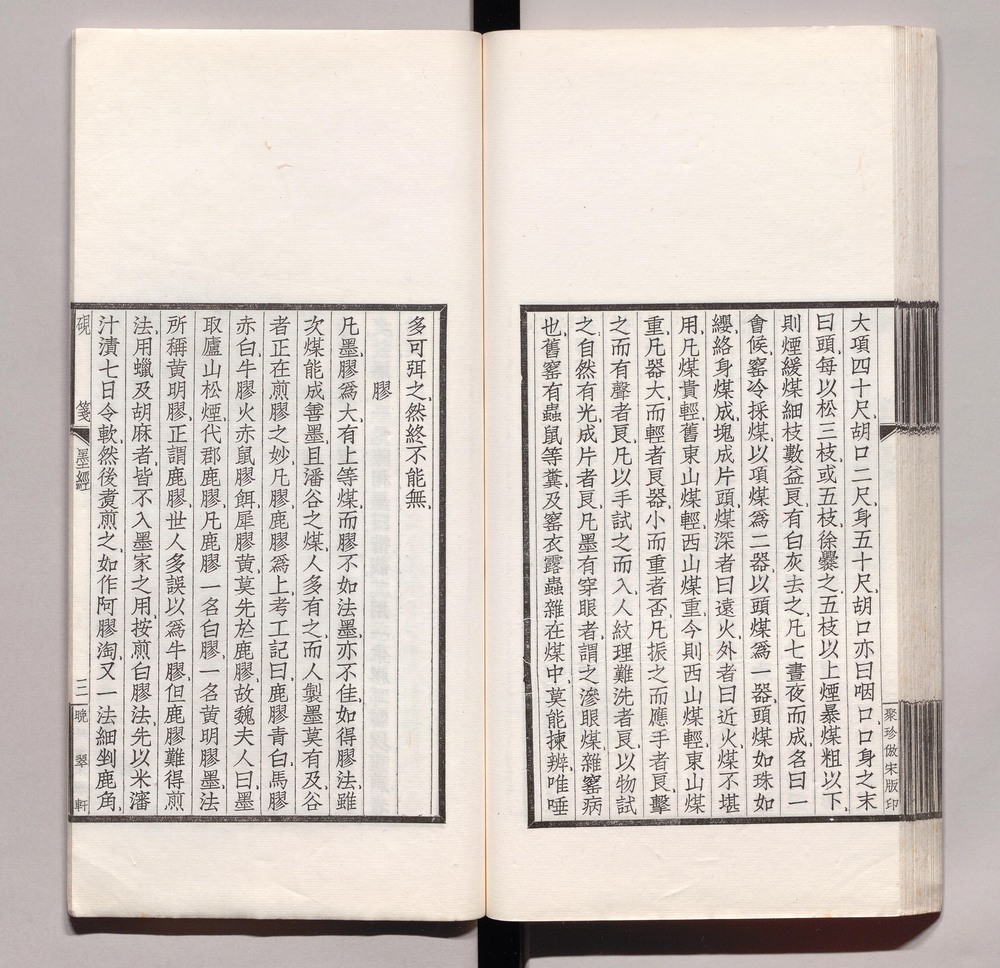 大項四十尺胡口二尺身五十尺胡口亦曰咽口口身之末
曰頭每以松三枝或五枝徐爨之五枝以上煙暴煤粗以下
則煙緩煤細枝數益良有白灰去之凡七晝夜而成名曰一
會候窰冷採煤以項煤為二器以頭煤為一器頭煤如珠如
纓絡身煤成塊成片頭煤深者曰遠火外者曰近火煤不堪
用凡煤貴輕舊東山煤輕西山煤重今則西山煤輕東山煤
重凡器大而輕者良器小而重者否凡振之而應手者良擊
之而有聲者良凡以手試之而入人紋理難洗者良以物試
之自然有光成片者良凡墨有穿眼者謂之滲眼煤雜窰病
也舊窰有蟲鼠等糞及窰衣露蟲雜在煤中莫能揀辨唯唾
聚珍倣宋版印
多可弭之然終不能無
膠
凡墨膠為大有上等煤而膠不如法墨亦不佳如得膠法雖
次煤能成善墨且潘谷之煤人多有之而人製墨莫有及谷
者正在煎膠之妙凡膠鹿膠為上考工記曰鹿膠青白馬膠
赤白牛膠火赤鼠膠餌犀膠黃莫先於鹿膠故魏夫人曰墨
取廬山松煙代郡鹿膠凡鹿膠一名白膠一名黃明膠墨法
所稱黃明膠正謂鹿膠世人多誤以為牛膠但鹿膠難得煎
法用蠟及胡麻者皆不入墨家之用按煎白膠法先以米瀋
汁漬七日令軟然後煑煎之如作阿膠淘又一法細剉鹿角
硯箋 墨經 三 晚翠軒